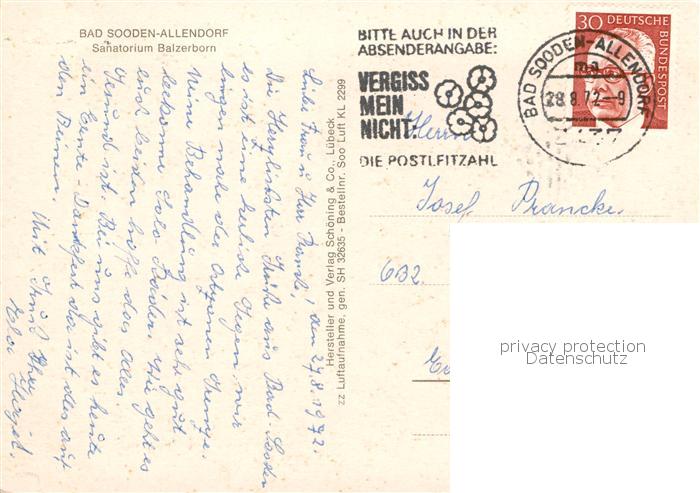 BAD SOODEN-ALLENDORF
Sanatorium Balzerborn
Liebe Frau u. Herr
den 27.8.1972.
Die herzlichsten Grüße aus Bad-Sooden
es ist eine herliche Gegen, wir
liegen nahe der Ostzonen Grenze.
Meine Behandlung ist sehr gut
bekome Sole Bäder. Wie geht es
euch beiden hoffe das alles
Gesund ist. Bei uns gibt es heute
ein Ernte-Dankfest da ist dies auf
den Beinen.
Mit Grüß Ihre
Hersteller und Verlag Schöning & Co., Lübeck
zz Luftaufnahme. gen. SH 32635 - Bestellnr. Soo Luft KL 2299
BITTE AUCH IN DER
ABSENDERANGABE:
VERGISS
MEIN
NICHT:
DIE POSTLEITZAHL
BAD SOODEN-ALLENDORF
28.8.72-9
30 DEUTSCHE
BUNDESPOST
Herrn
Josef Prancke.
632.
privacy protection
Datenschutz